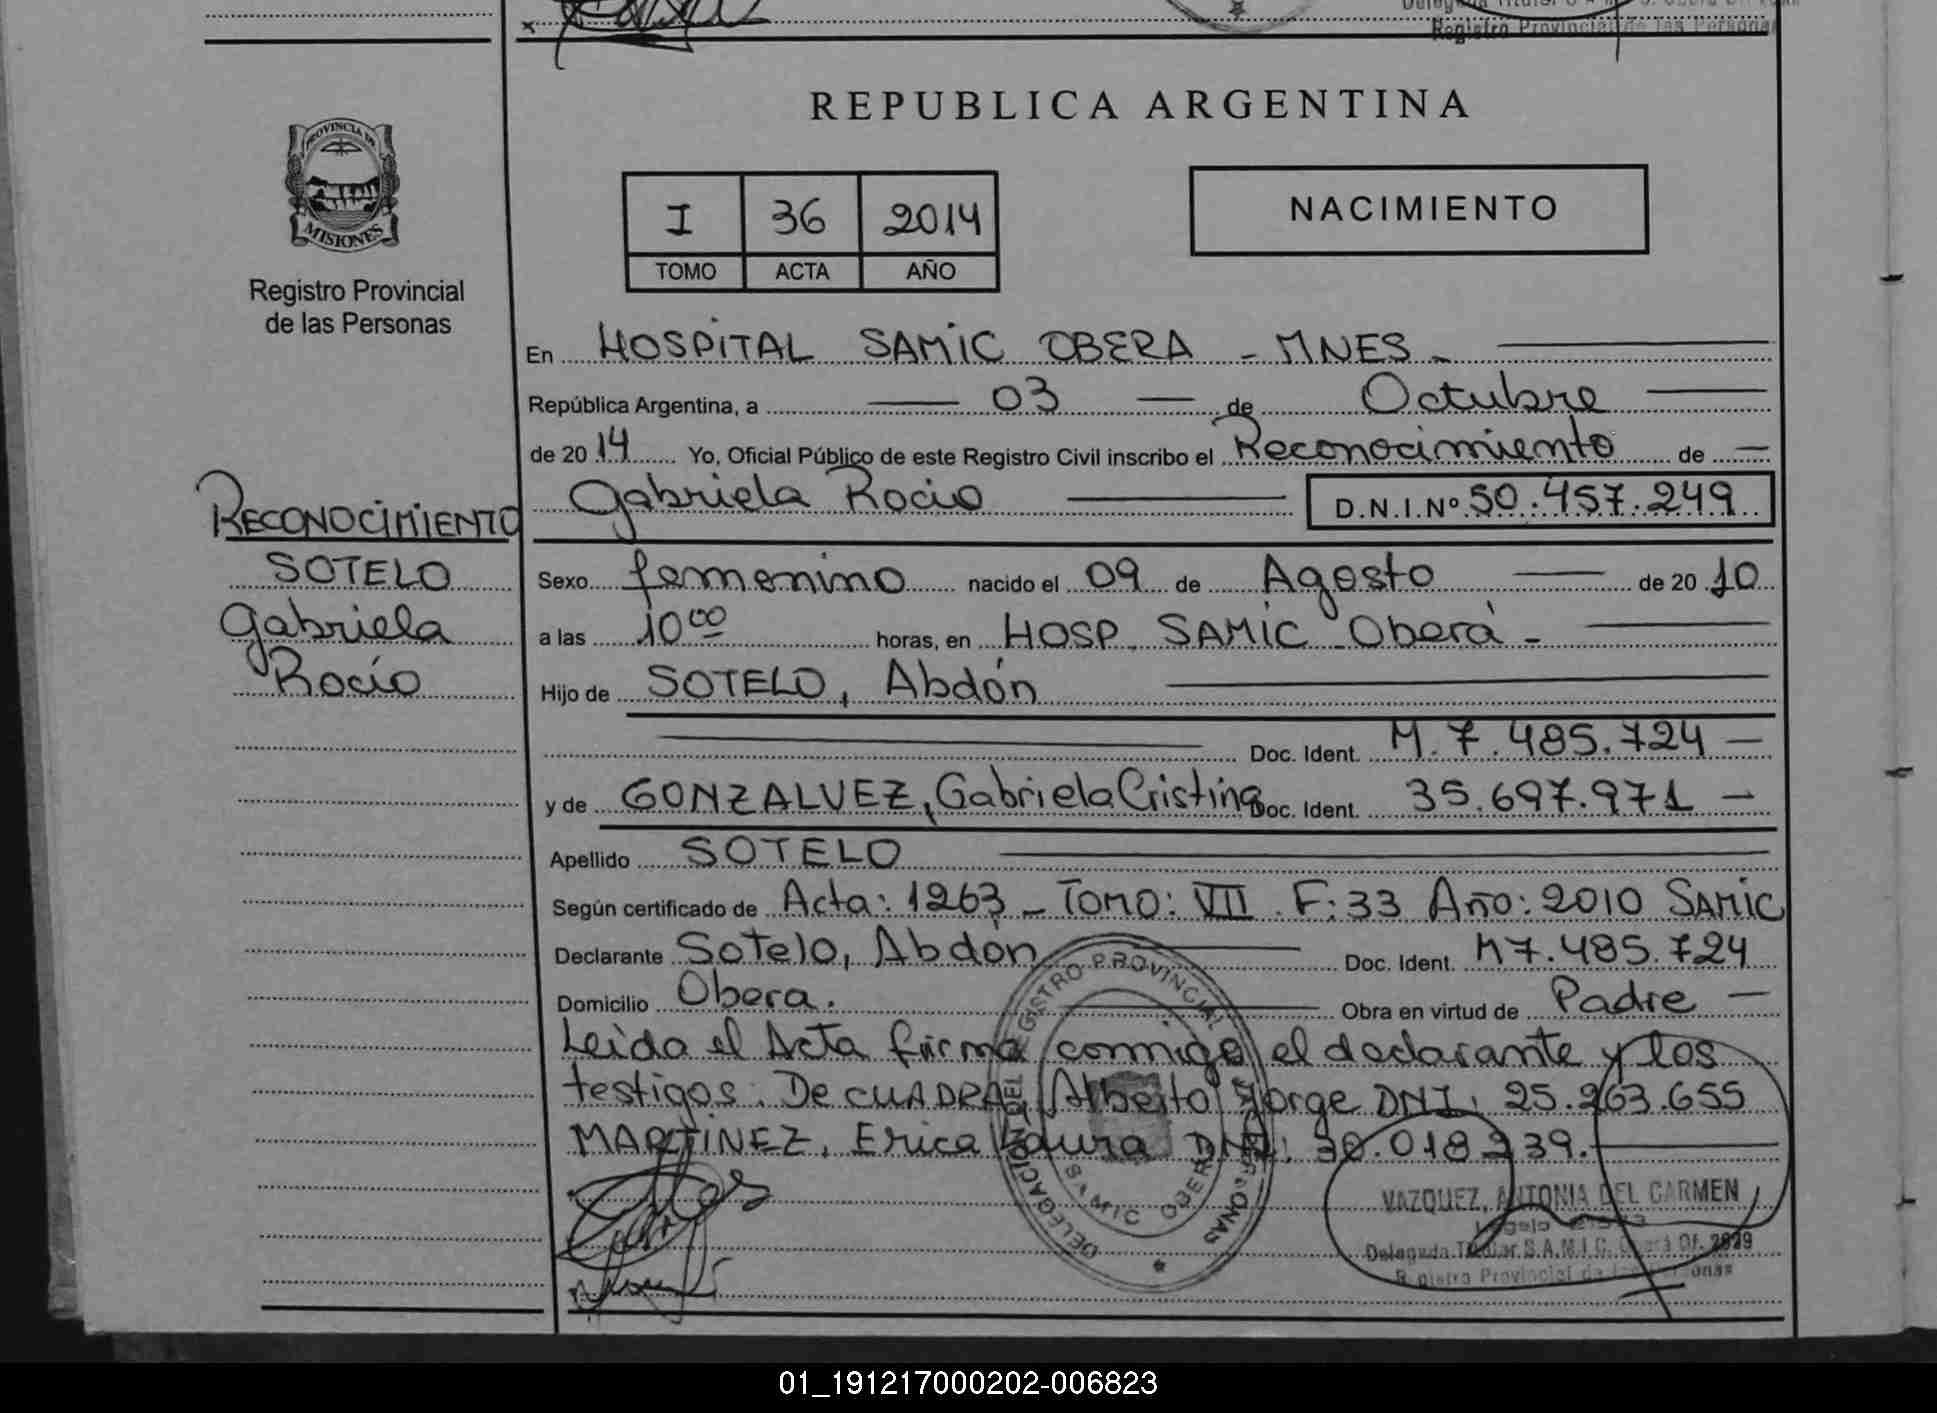 Registro Provincial de las Personas
REPUBLICA ARGENTINA
PROVINCIA DE
MISIONES
Registro Provincial
de las Personas
I 36 2014
TOMO ACTA AÑO
NACIMIENTO
En HOSPITAL SAMIC OBERA - MNES -
República Argentina, a 03 de Octubre
de 2014 Yo, Oficial Público de este Registro Civil inscribo el Reconocimiento de
Gabriela Rocio D.N.I.Nº 50.457.249
RECONOCIMIENTO
SOTELO
Gabriela
Rocío
Sexo femenino nacido el 09 de Agosto de 2010
a las 10 00 horas, en HOSP. SAMIC Oberá -
Hijo de SOTELO, Abdón
Doc. Ident. M.7.485.724
y de GONZALVEZ, Gabriela Cristina Doc. Ident. 35.697.971
Apellido SOTELO
Según certificado de Acta: 1263 - Tomo: VII F: 33 Año: 2010 SAMIC
Declarante Sotelo, Abdón Doc. Ident. M7.485.724
Domicilio Obera. Obra en virtud de Padre
Leida el Acta firma conmigo el declarante y los
testigos. De CUADRA, Alberto Jorge DNI. 25.263.655
MARTINEZ, Erica Laura DNI: 30.018.239.
DELEGACION DEL REGISTRO PROVINCIAL DE LAS PERSONAS
SAMIC OBERA
VAZQUEZ, ANTONIA DEL CARMEN
Delegada Titular S.A.M.I.C. Oberá Of. 2929
Registro Provincial de las Personas
01_191217000202-006823